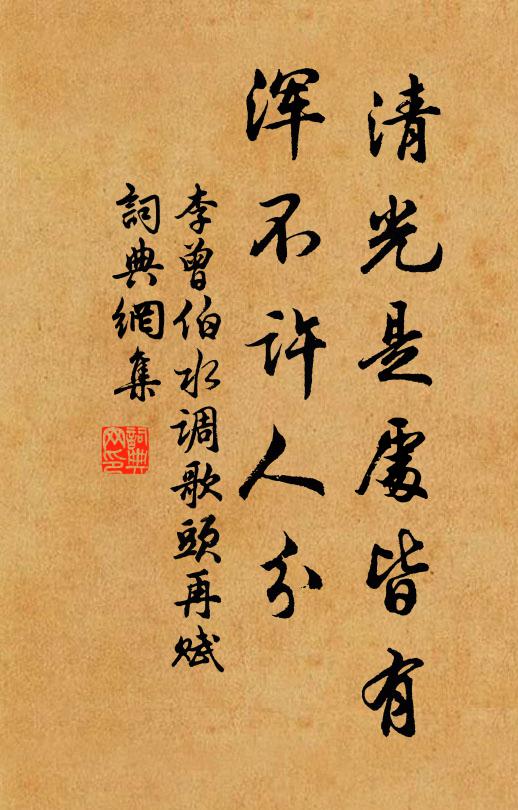 清光是處皆有
浑不许人分
李曾伯水调歌頭再赋
詞典網集
詞典
网印